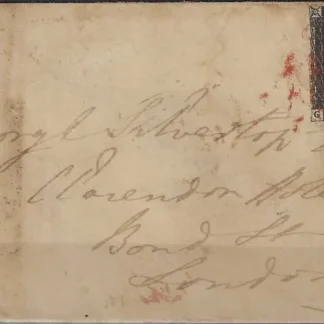 G
orge Silvertop
Clarendon Hote
Bond St
London